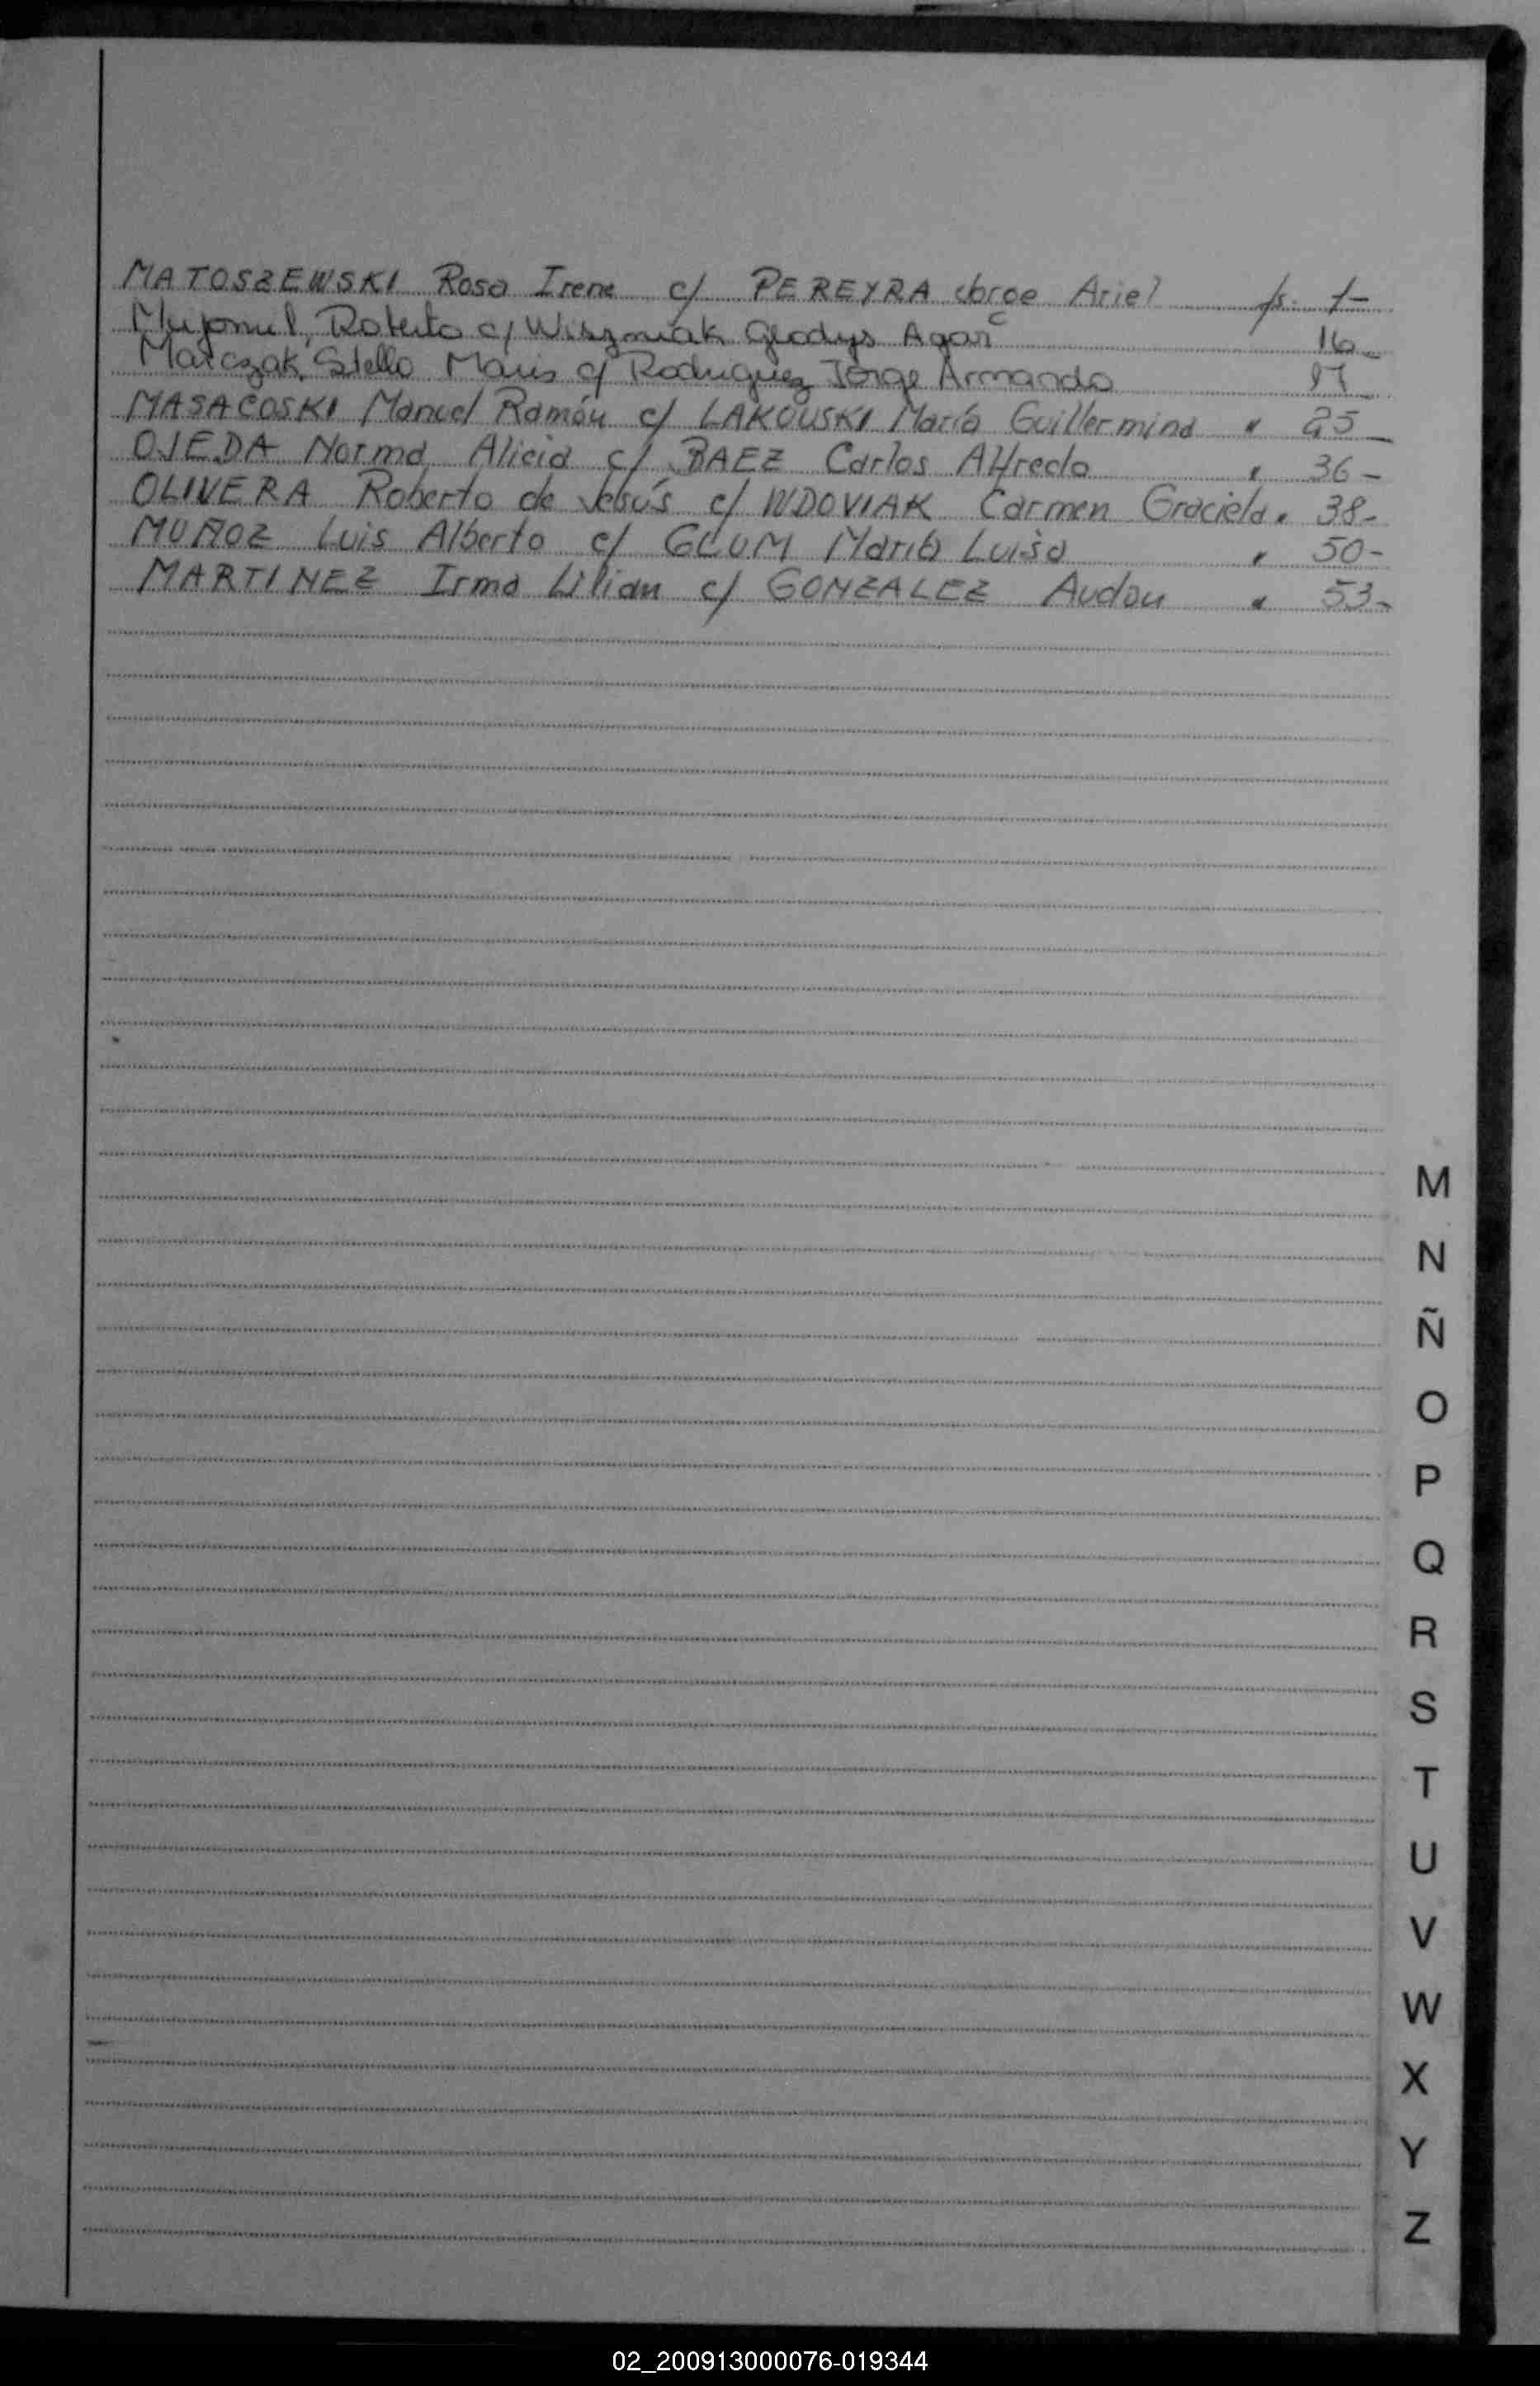 MATOSZEWSKI Rosa Irene c/ PEREYRA Jorge Ariel fs. 1-
Roberto c/ Wiszniak Gladys Agar 16-
Marczak, Stella Maris c/ Rodriguez Jorge Armando 17
MASACOSKI Manuel Ramón c/ LAKOUSKI María Guillermina " 25-
OJEDA Norma Alicia c/ BAEZ Carlos Alfredo " 36-
OLIVERA Roberto de Jesús c/ WDOVIAK Carmen Graciela " 38-
MUÑOZ Luis Alberto c/ GLUM María Luisa " 50-
MARTINEZ Irma Lilian c/ GONZALEZ " 53-
M
N
Ñ
O
P
Q
R
S
T
U
V
W
X
Y
Z
02_200913000076-019344